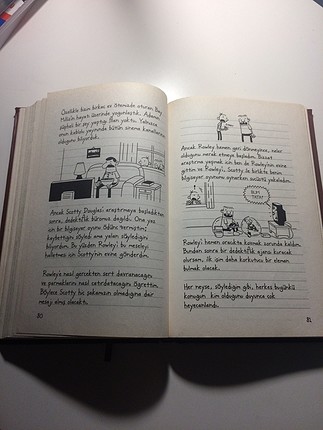 Özellikle bizim birkaç ev ötemizde oturan Bay
Millis'in hayatı üzerinde yoğunlaştık. Adamın
şüpheli bir şey yaptığı filan yoktu. Yalnızca
onun kablolu yayınında bütün sinema kanallarının
olduğunu biliyorduk.
Ancak Scotty Douglas'ı araştırmaya başladıktan
sonra dedektiflik büromuz dağıldı. Ona yaz
için bir bilgisayar oyunu ödünç vermiştim;
kaybettiğini söyledi ama yalan söylediğini
biliyordum. Bu yüzden Rowley'i bu meseleyi
halletmesi için Scotty'nin evine gönderdim.
Rowley'e nasıl gerçekten sert davranacağını
ve parmaklarını nasıl çatırdatacağını öğrettim.
Böylece Scotty hiç şakamızın olmadığına dair
mesajı almış olacaktı.
80
Ancak Rowley hemen geri dönmeyince, neler
olduğunu merak etmeye başladım. Bizzat
araştırma yapmak için ben de Rowley'nin evine
gittim ve Rowley'i, Scotty ile birlikte benim
bilgisayar oyunumu oynarken suçüstü yakaladım.
BİZİM
TAYFA!
Rowley'i hemen oracıkta kovmak zorunda kaldım.
Bundan sonra bir dedektiflik ajansı kuracak
olursam, ilk işim daha korkutucu bir eleman
bulmak olacak.
Her neyse, söylediğim gibi, herkes bugünkü
konuğun kim olduğunu duyunca çok
heyecanlandı.
81